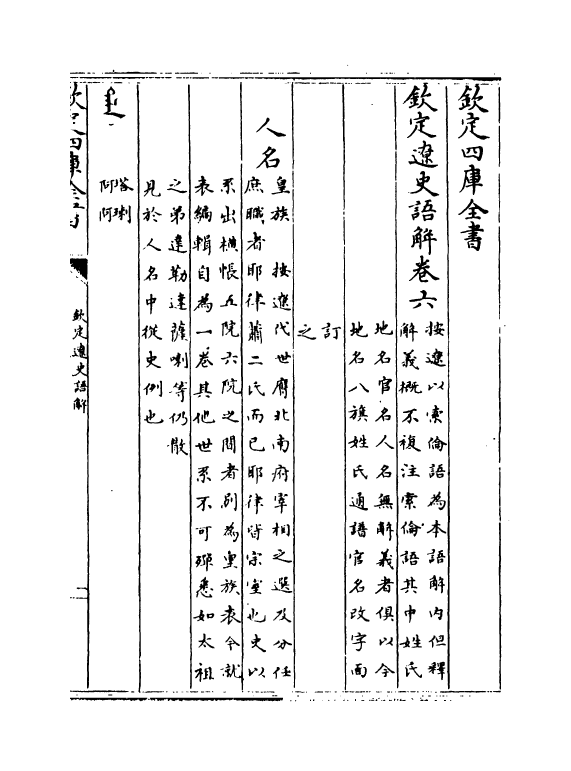 欽定四庫全書
欽定遼史語解卷六
按遼以索倫語為本語解內但釋
解義概不複注索倫語其中姓氏
地名官名人名無解義者俱以今
地名八旗姓氏通譜官名改字面
訂之
人名
皇族 按遼代世膺北南府宰相之選及分任
庶職者耶律蕭二氏而已耶律皆宗室也史以
系出橫帳五院六院之間者別為皇族表今就
表編輯自為一卷其他世系不可殫悉如太祖
之弟達勒達薩喇等仍散
見於人名中從史例也
塔喇
阿阿
欽定四庫全書
欽定遼史語解
一